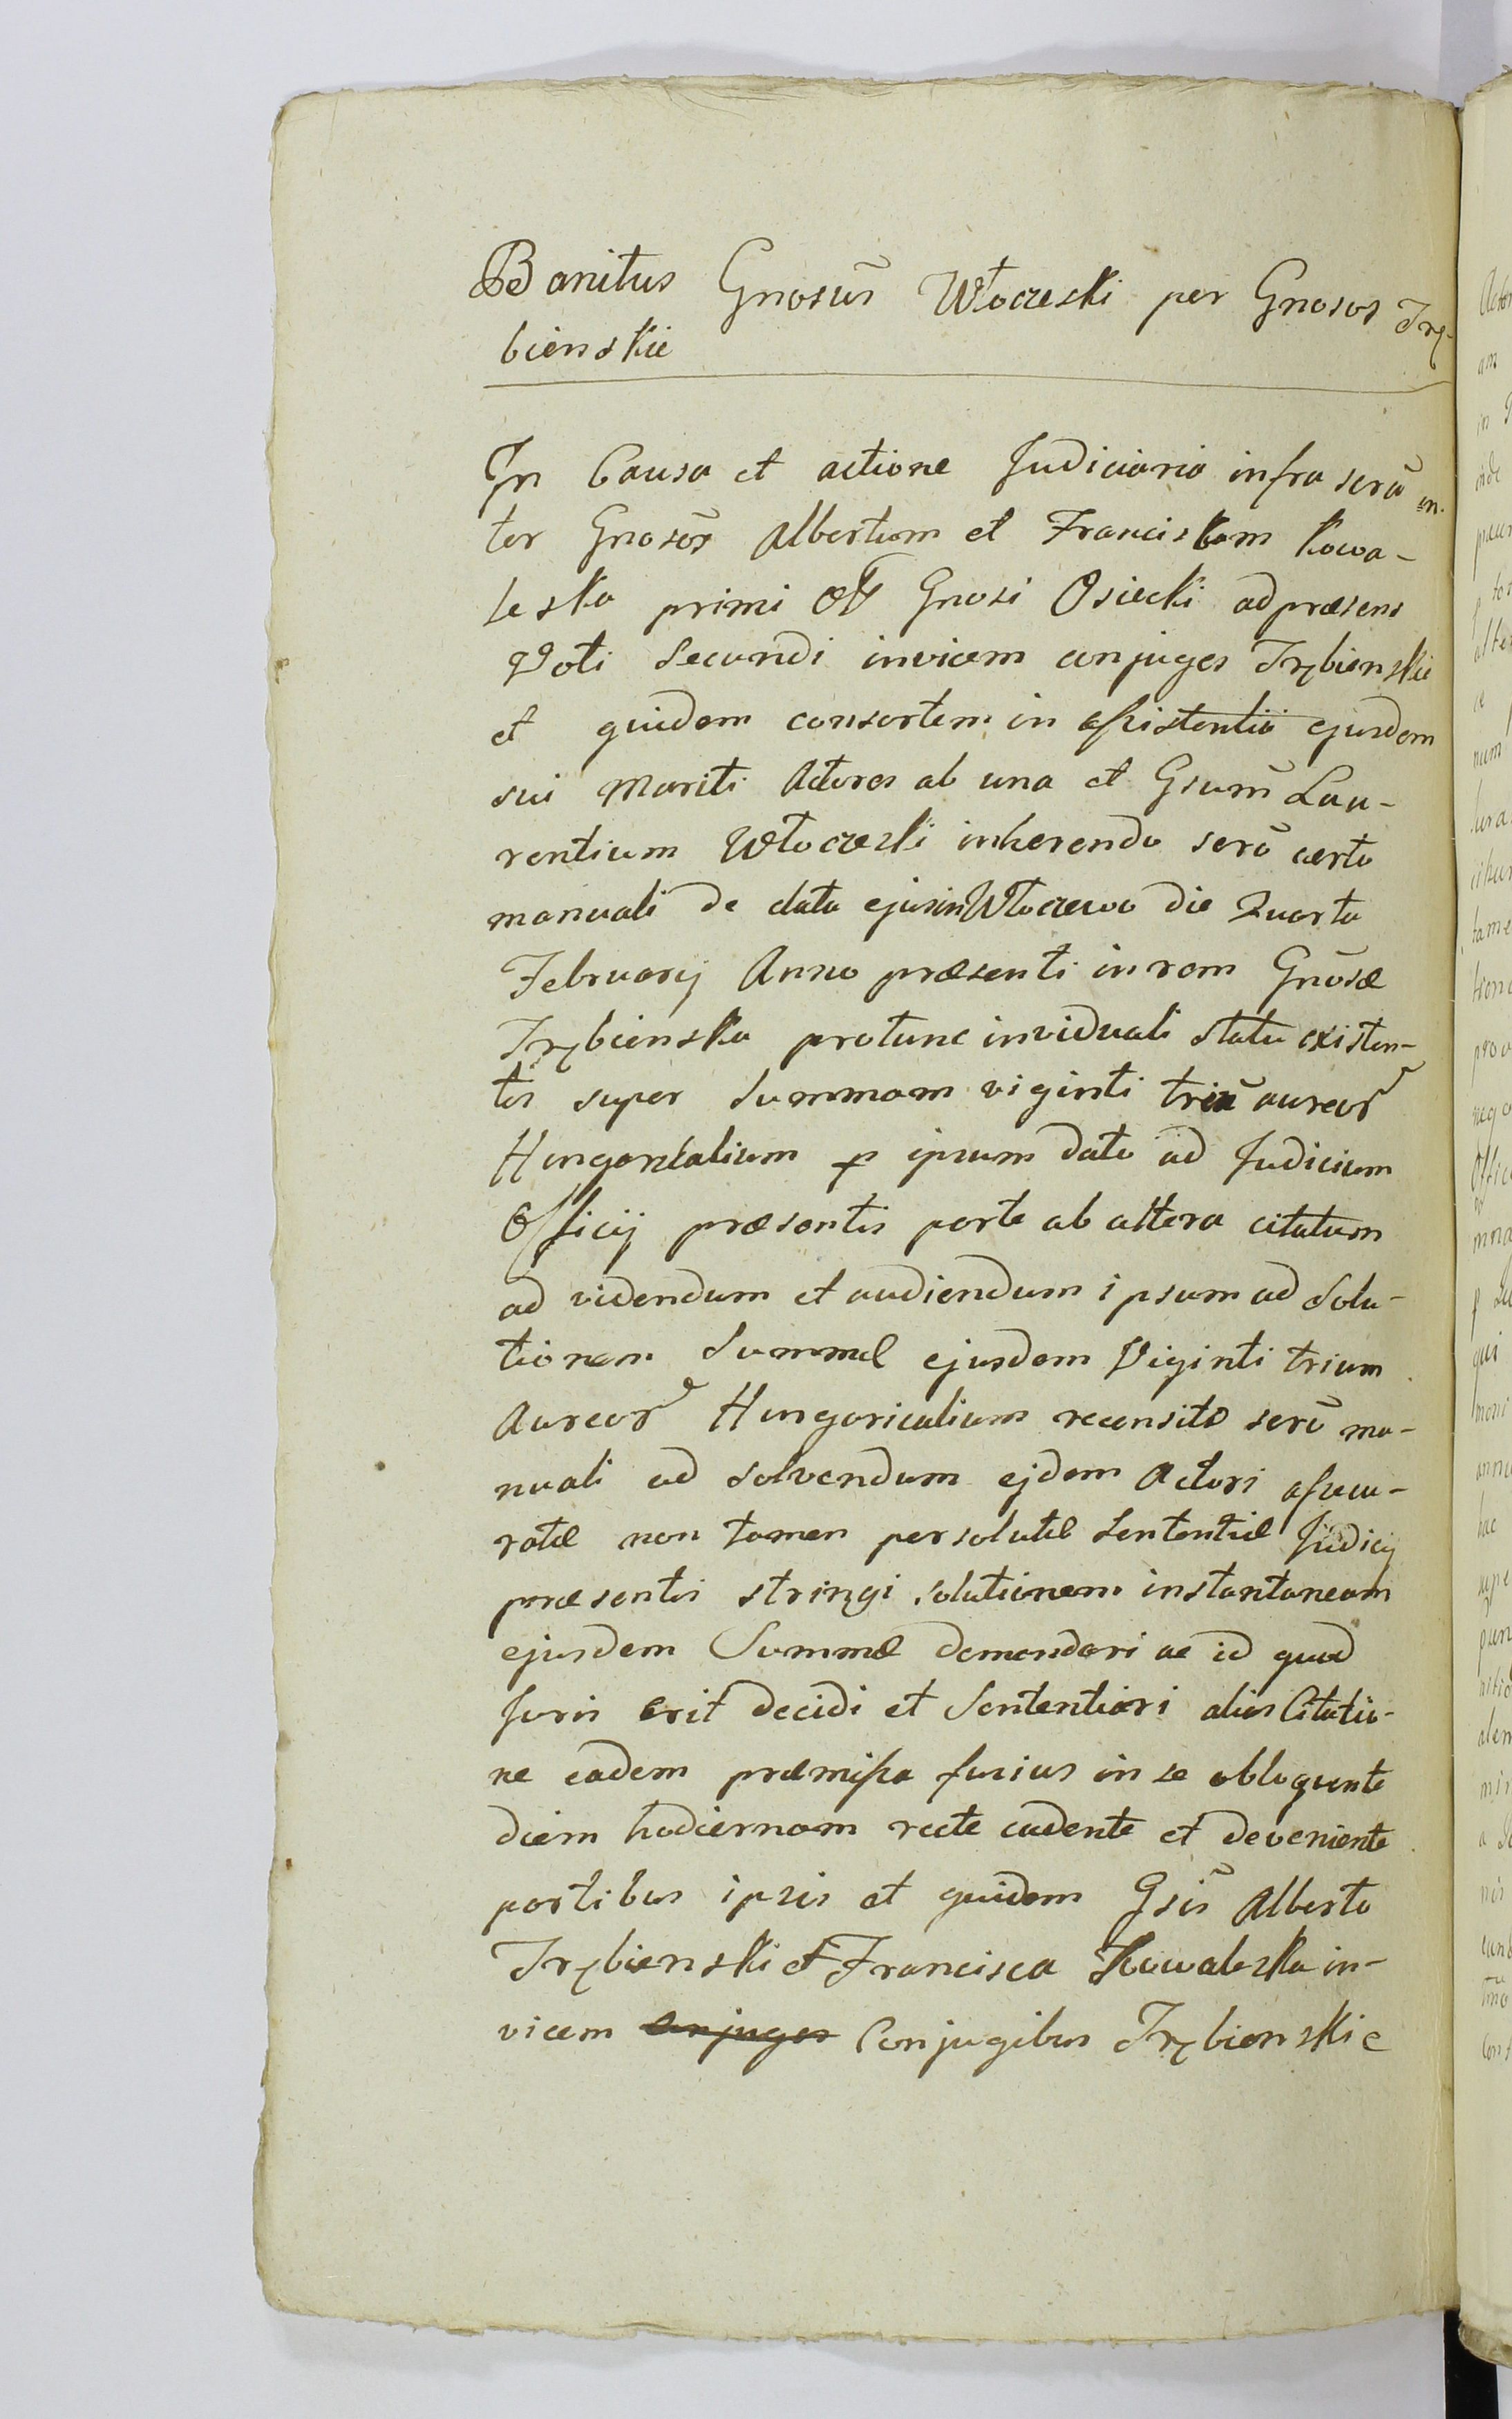 Banitus Gnosus̃ Włoczeski per Gnosos Trz-
bienskie
In Causa et actione Judiciaria infra scrã in-
ter Gnosõs Albertum et Franciskam Kowa-
leska primi Gnosi Osiecki ad præsens
Voti Secundi invicem conjuges Trzbienskie
et quidem consortem in assistentia ejusdem
sui Mariti Actores ab una et Gsum̃ Lau-
rentium Włoczeski inherendo scrõ certo
manuali de data ejus in Włoczewo die Quarta
Februarij Anno præsenti in rem Gnõsæ
Trzbienska protunc in viduali statu existen-
tis super Summam viginti triũ aureor
Hungaricalium p ipsum dato ad Judicium
Officij præsentis parte ab altera citatum
ad videndum et audiendum ipsum ad Solu-
tionem Summæ ejusdem Viginti trium
Aureor Hungaricalium recensito scrõ ma-
nuali ad Solvendum ejdem Actori assecu-
ratæ non tamen persolutæ Sententiæ Judicij
præsentis stringi solutionem instantaneam
ejusdem Summæ demandari ac id quod
Juris erit decidi et Sententiari alias Citatio-
ne eadem præmissa fusius in se obloquente
diem hodiernam recte cadente et deveniente
partibus ipsis et quidem Gsis̃ Alberto
Trzbienski et Francisca Kowaleska in-
vicem conjuges Conjugibus Trzbienskie